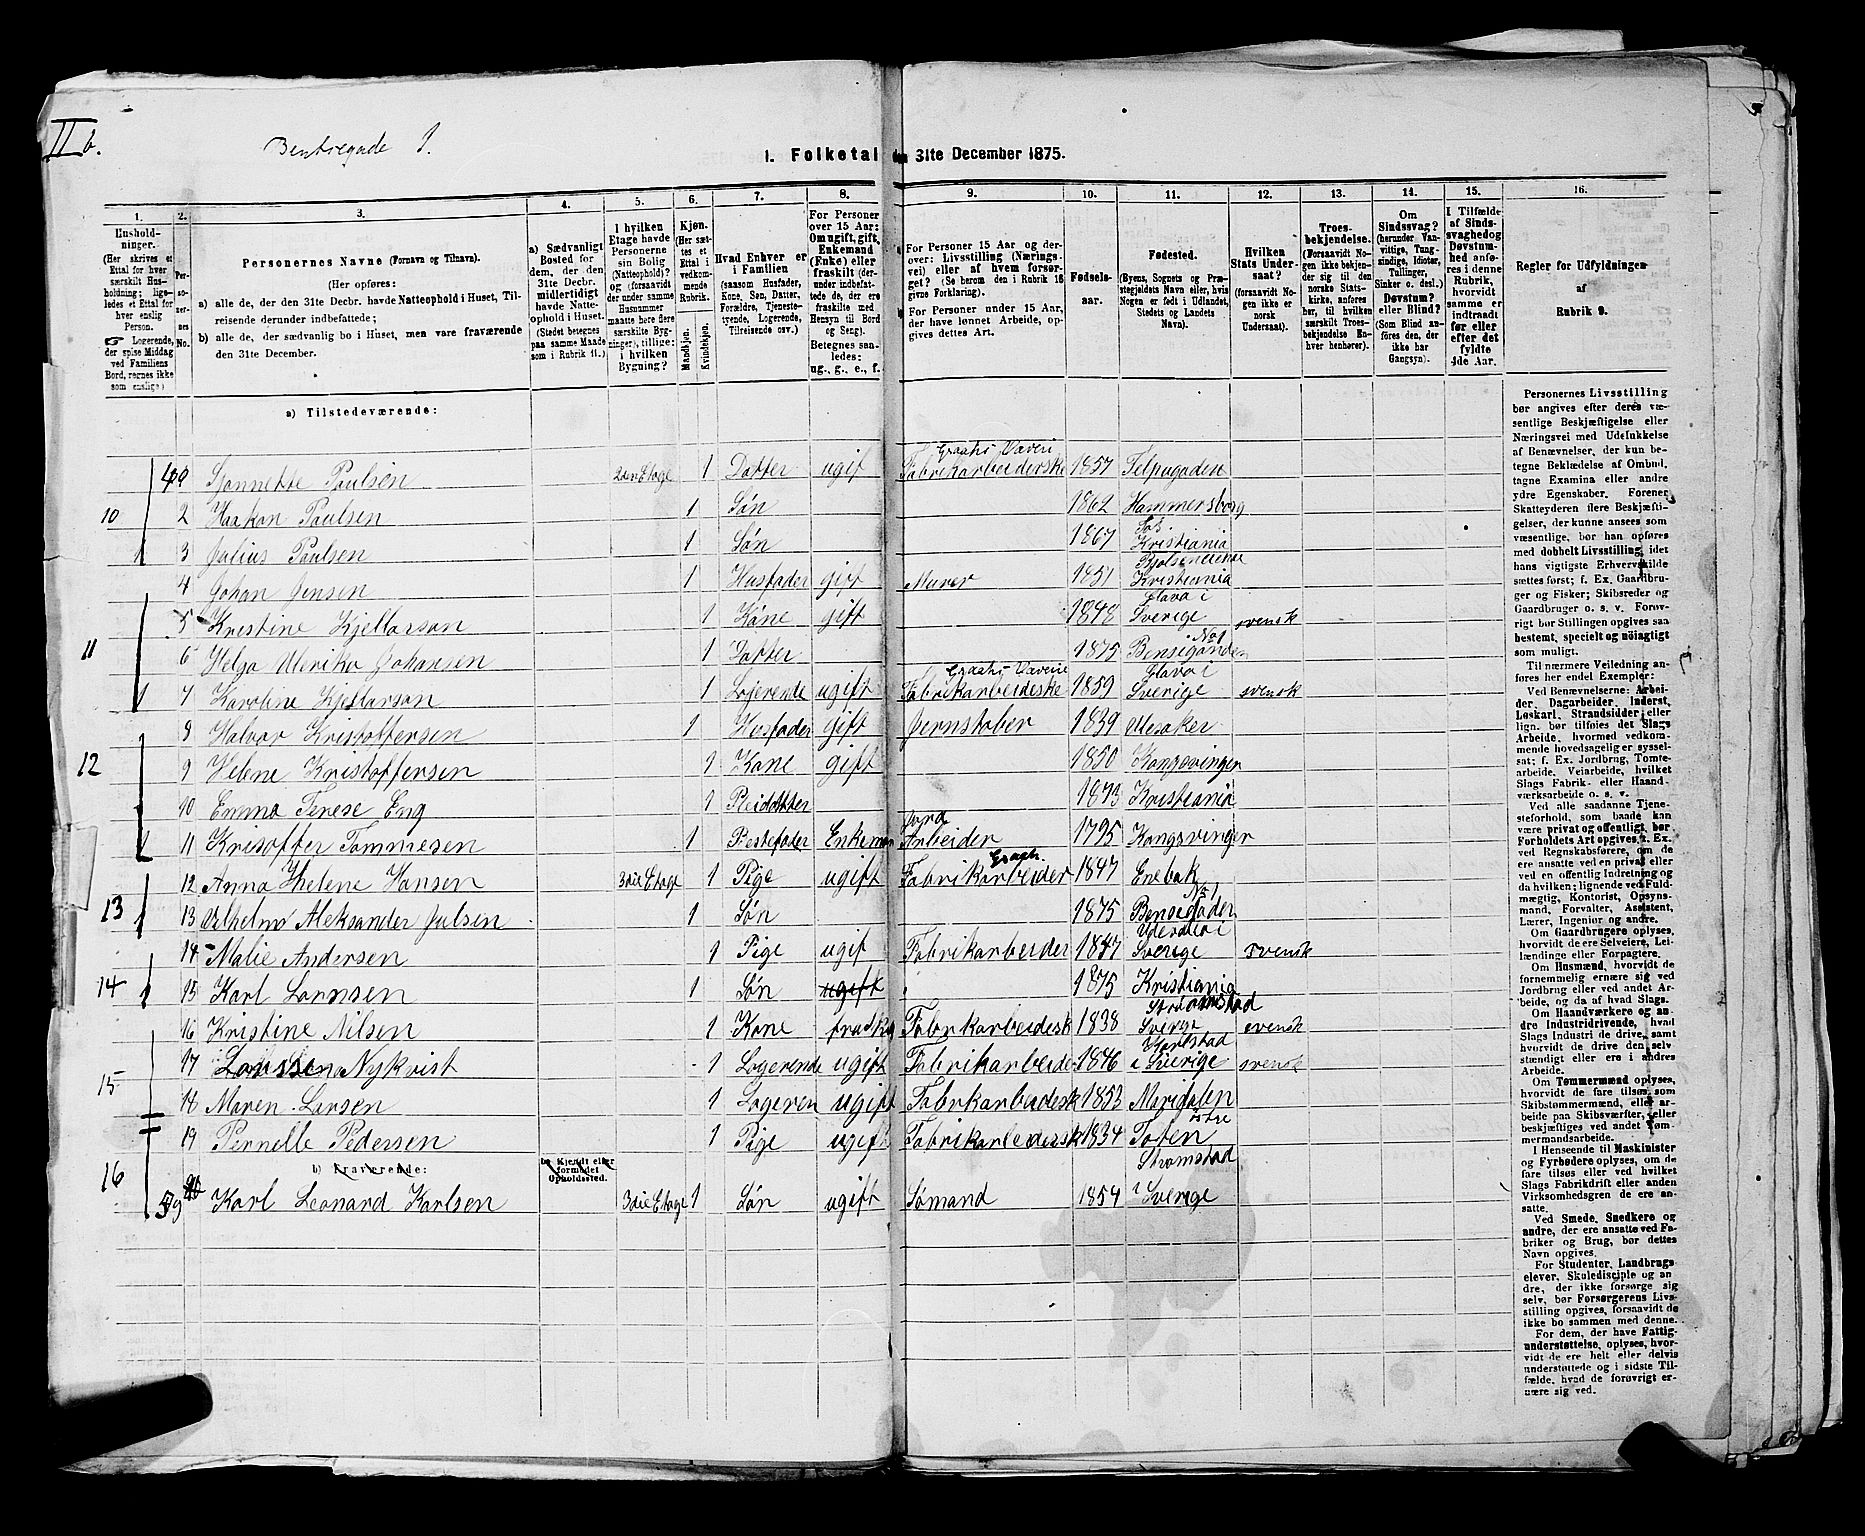 II b.
Bentsegade 1.
1. Folketal den 31te December 1875.
1. 2. 3. 4. 5. 6. 7. 8. 9. 10. 11. 12. 13. 14. 15. 16.
Husholdninger. (Her skrives et Ettal for hver særskilt Husholdning; ligeledes et Ettal for hver enslig Person. ☞ Logerende, der spise Middag ved Familiens Bord, regnes ikke som enslige)
Personernes No.
Personernes Navne (Fornavn og Tilnavn).
(Her opføres:
a) alle de, der den 31te Decbr. havde Natteophold i Huset, Tilreisende derunder indbefattede;
b) alle de, der sædvanlig bo i Huset, men vare fraværende den 31te December.
a) Sædvanligt Bosted for dem, der den 31te Decbr. midlertidigt havde Natteophold i Huset. (Stedet betegnes paa samme Maade som i Rubrik 11.)
I hvilken Etage havde Personerne sin Bolig (Natteophold)? og (forsaavidt der under samme Husnummer maatte høre flere særskilte Bygninger), tillige: i hvilken Bygning?
Kjøn. (Her sættes et Ettal i vedkommende Rubrik.
Mandkjøn. Kvindekjøn.
Hvad Enhver er i Familien (saasom Husfader, Kone, Søn, Datter, Forældre, Tjenestetyende, Logerende, Tilreisende osv.)
For Personer over 15 Aar: Om ugift, gift, Enkemand (Enke) eller fraskilt (derunder indbefattede de, der ere fraskilte med Hensyn til Bord og Seng). Betegnes saaledes: ug., g., e., f.
For Personer 15 Aar og derover: Livsstilling (Næringsvei) eller af hvem forsørget? (Se herom den i Rubrik 16 givne Forklaring). For Personer under 15 Aar, der have lønnet Arbeide, opgives dettes Art.
Fødselsaar.
Fødested. (Byens, Sognets og Præstegjeldets Navn eller, hvis Nogen er født i Udlandet, Stedets og Landets Navn).
Hvilken Stats Undersaat? (forsaavidt Nogen ikke er norsk Undersaat).
Troesbekjendelse. (Forsaavidt Nogen ikke bekjender sig til den norske Statskirke, anføres her, til hvilket særskilt Troesbekjendelse Enhver henhører).
Om Sindssvag? (herunder Vanvittige, Tungsindige, Idioter, Tullinger, Sinker o. desl.) Døvstum? eller Blind? (Som Blind anføres den, der ikke har Gangsyn).
I Tilfælde af Sindssvaghed og Døvstumhed anføres i denne Rubrik, hvorvidt samme er indtraadt før eller efter det fyldte 4de Aar.
Regler for Udfyldningen af Rubrik 9.
a) Tilstedeværende:
Jannette Paulsen 2den Etage 1 Datter ugift Graahs Væveri Fabrikarbeiderske 1857
10 2 Haakon Paulsen 1 Søn 1862 Hammersborg
1 3 Julius Paulsen 1 Søn 1867 Kristiania
4 Johan Jensen 1 Husfader gift Murer 1851 Kristiania
5 Kristine Kjellarson 1 Kone gift 1848 Glava i Sverige svensk
11 6 Helga Ulrikke Johansen 1 Datter 1875 No 1
1 7 Karoline Kjellarson 1 Lojerende ugift Graahs Væveri Fabrikarbeideske 1859 Glava i Sverige svensk
8 Halvor Kristoffersen 1 Husfader gift Jernstøber 1839 Ulesaker
12 9 Helene Kristoffersen 1 Kone gift 1850 Kongsvinger
10 Emma Terese Eng 1 Pleidatter 1873 Kristiania
1 11 Kristoffer Tommesen 1 Bestefader Enkeman Jord Arbeider 1795 Kongsvinger
12 Anna Helene Hansen 3die Etage 1 Pige ugift Graah. Fabrikarbeider 1847 Enebak
13 1 13 Vilhelm Aleksander Julsen 1 Søn 1875 No 1
14 Malie Andersen 1 Pige ugif Fabrikarbeider 1847 i Sverige svensk
14 1 15 Karl 1 Søn ugift 1875 Kristiania
16 Kristine Nilsen 1 Kone Fabrikarbeidesk 1838 Strømstad Sverge svensk
15 17 Nykvist 1 Logerende ugift Fabrikarbeide 1846 Karlstad i Sverige svensk
18 Maren Larsen 1 Logeren ugift Fabrikarbeidesk 1853 Maridalen
19 Pernelle Pedersen 1 Pige ugift Fabrikarbeidersk 1834 østre Toten
16 b) Fraværende: b) Kjendt eller formodet Opholdssted.
Karl Leonard Karlsen 3die Etage 1 Søn ugift Sømand 1854 Strømstad i Sverige
Personernes Livsstilling bør angives efter deres væsentlige Beskjæftigelse eller Næringsvei med Udelukkelse af Benævnelser, der kun betegne Beklædelse af Ombud, tagne Examina eller andre ydre Egenskaber. Forener Skatteyderen flere Beskjæftigelser, der kunne ansees som væsentlige, bør han opføres med dobbelt Livsstilling, idet hans vigtigste Erhvervskilde sættes først; f. Ex. Gaardbruger og Fisker; Skibsreder og Gaardbruger o. s. v. Forøvrigt bør Stillingen opgives saa bestemt, specielt og nøiagtigt som muligt.
Til nærmere Veiledning anføres her endel Exempler:
Ved Benævnelserne: Arbeider, Dagarbeider, Inderst, Løskarl, Strandsidder eller lign. bør tilføies det Slags Arbeide, hvormed vedkommende hovedsagelig er sysselsat; f. Ex. Jordbrug, Tomtearbeide, Veiarbeide, hvilket Slags Fabrik- eller Haandværksarbeide o. s. v.
Ved alle saadanne Tjenesteforhold, som baade kan være privat og offentligt, bør Forholdets Art opgives, f. Ex. ved Regnskabsførere, om de ere ansatte ved en privat eller ved en offentlig Indretning og da hvilken; lignende ved Fuldmægtig, Kontorist, Opsynsmand, Forvalter, Assistent, Lærer, Ingeniør og andre.
Om Gaardbrugere oplyses, hvorvidt de ere Selveiere, Leilændinge eller Forpagtere.
Om Husmænd, hvorvidt de fornemmelig ernære sig ved Jordbrug eller ved andet Arbeide, og da af hvad Slags.
Om Haandværkere og andre Industridrivende, hvad Slags Industri de drive, samt hvorvidt de drive den selvstændigt eller ere i andres Arbeide.
Om Tømmermænd oplyses, hvorvidt de fare tilsøs som Skibstømmermænd, eller arbeide paa Skibsværfter, eller beskjæftiges ved andet Tømmermandsarbeide.
I Henseende til Maskinister og Fyrbødere oplyses, om de fare tilsøs eller ved hvilket Slags Fabrikdrift eller anden Virksomhedsgren de ere ansatte.
Ved Smede, Snedkere og andre, der ere ansatte ved Fabriker og Brug, bør dettes Navn opgives.
For Studenter, Landbrugselever, Skoledisciple og andre, der ikke forsørge sig selv, bør Forsørgerens Livsstilling opgives, forsaavidt de ikke bo sammen med denne.
For dem, der have Fattigunderstøttelse, oplyses, hvorvidt de ere helt eller delvis understøttede og i sidste Tilfælde, hvad de forøvrigt ernære sig ved.